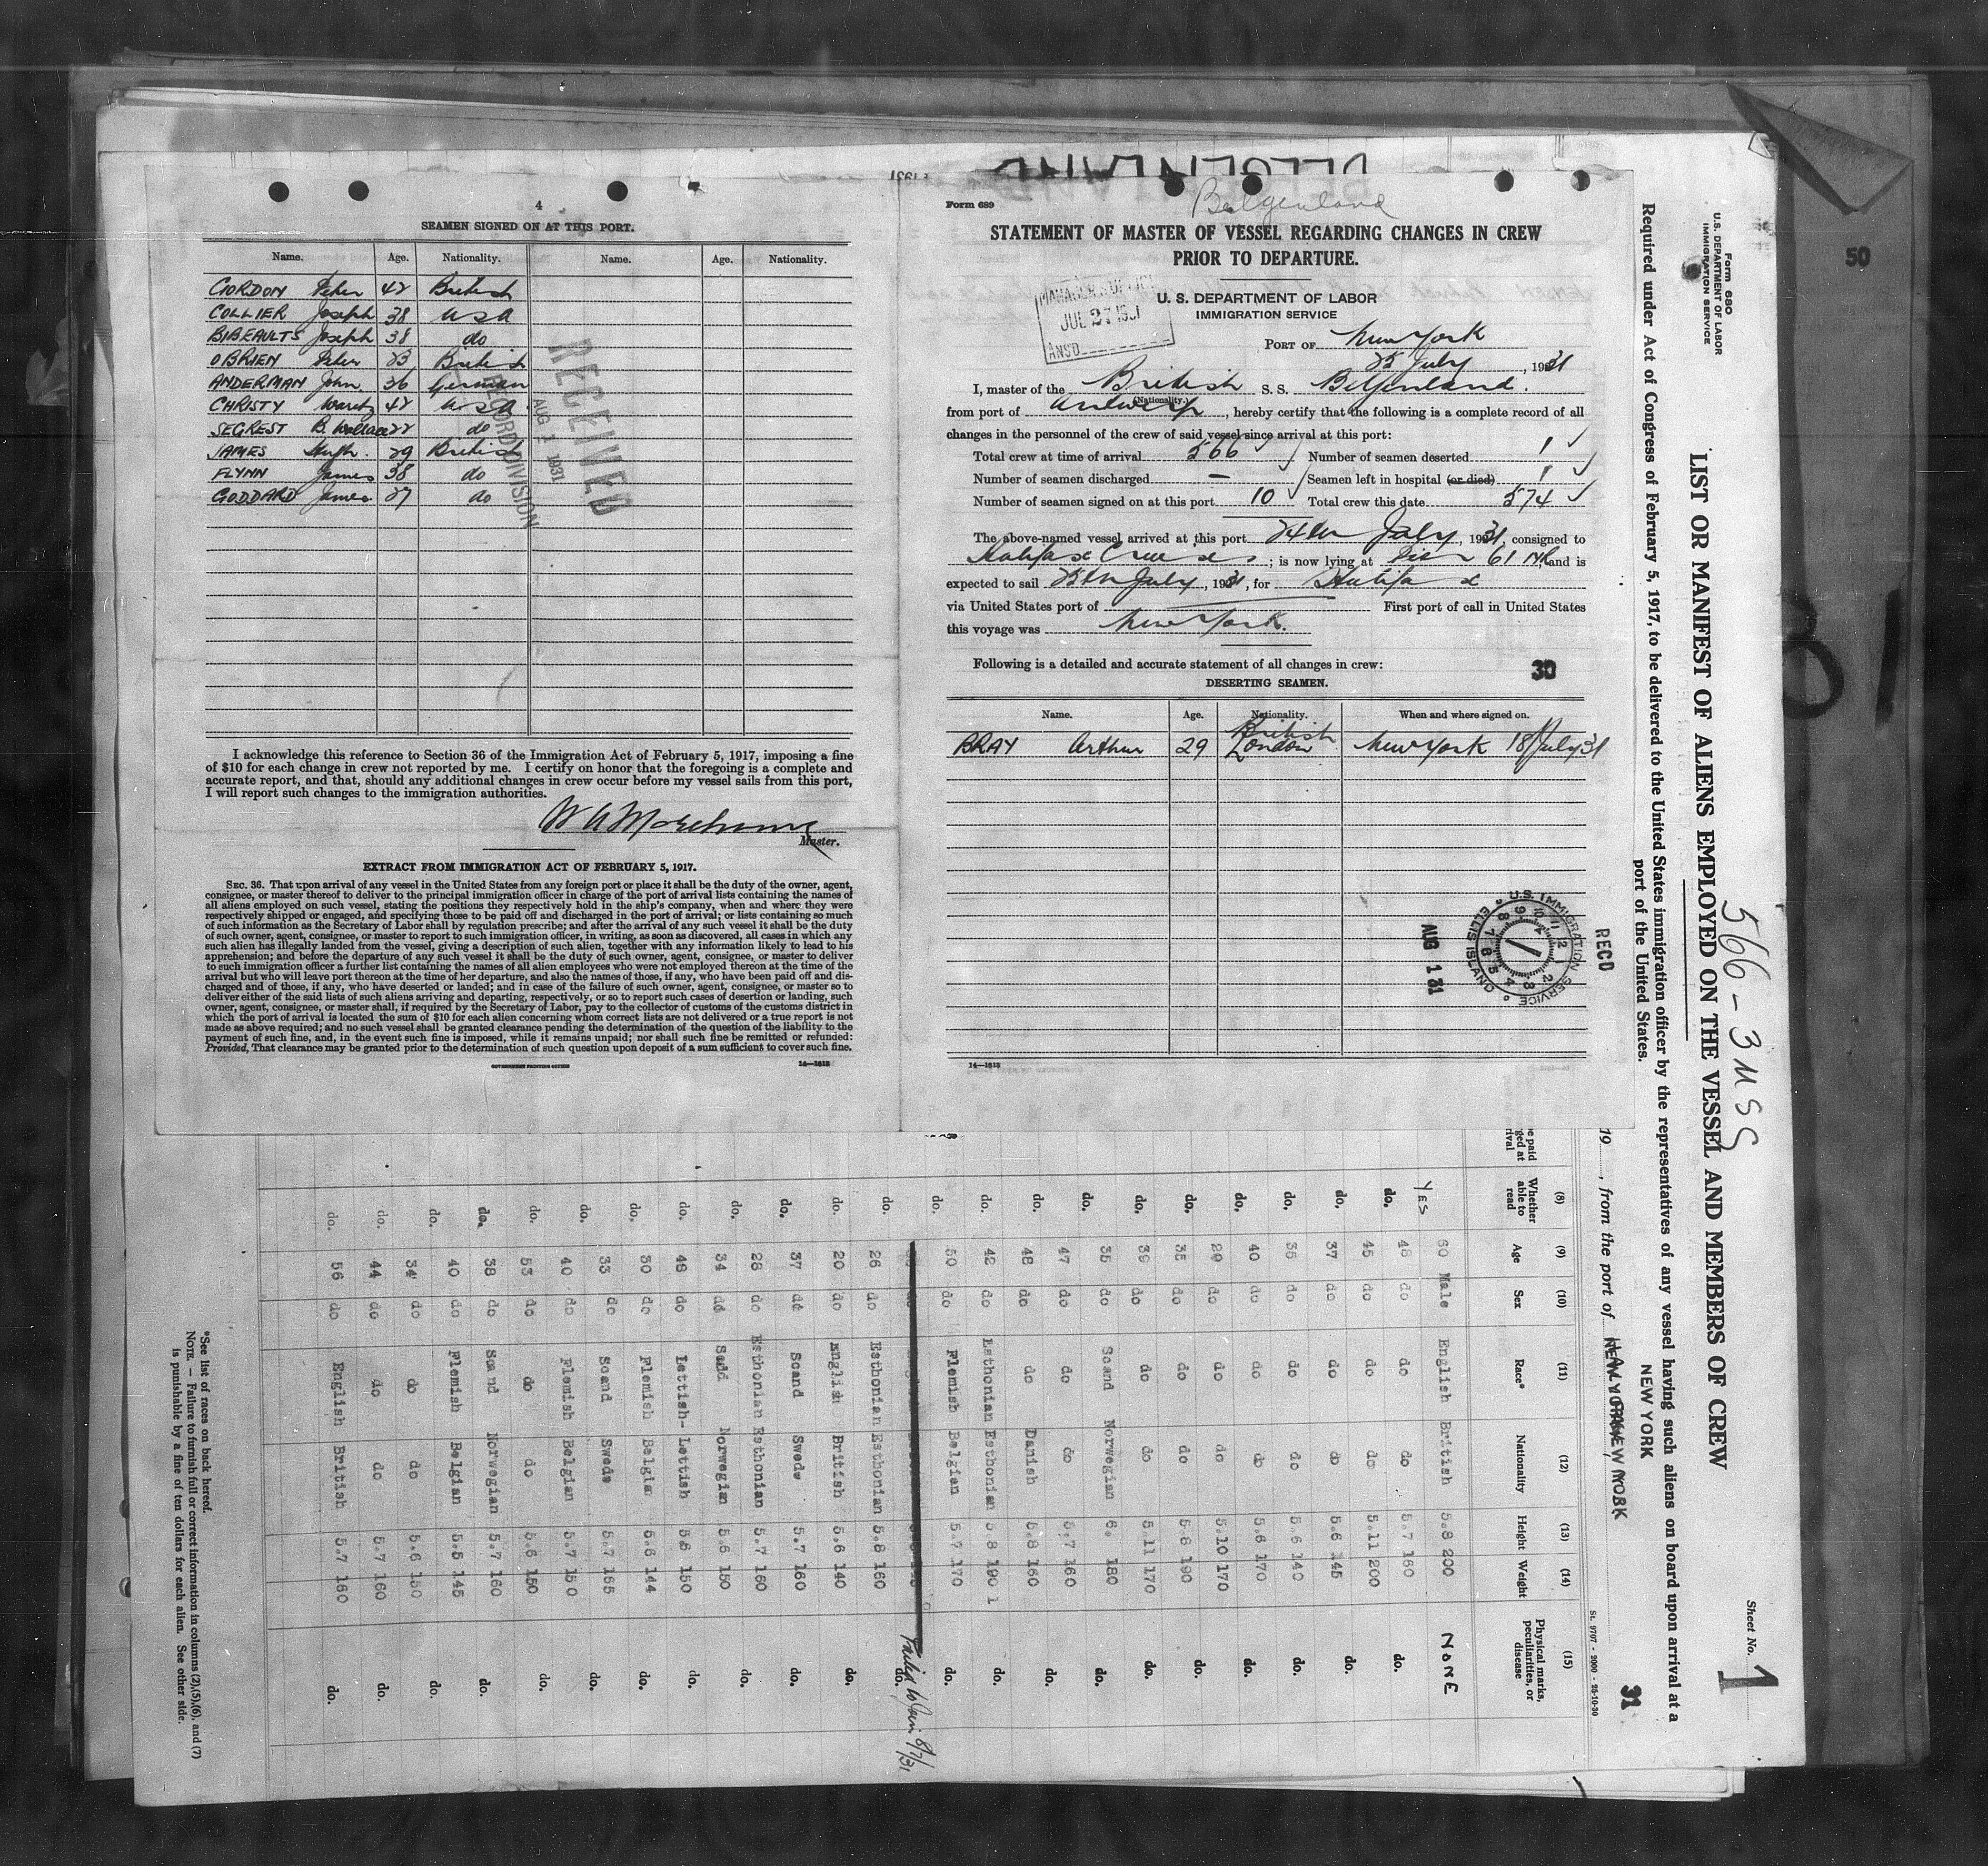 4
SEAMEN SIGNED ON AT THIS PORT.
Name. Age. Nationality. Name. Age. Nationality.
GORDON Peter 42 British
COLLIER Joseph 38 USA
BIBEAULTS Joseph 38 do
OBRIEN Peter 23 British
ANDERMAN John. 36 German
CHRISTY 42 USA
SEGREST B. Wallace 22 do
JAMES Hugh. 29 British
FLYNN James 38 do
GODDARD James 27 do
RECEIVED
AUG 1 1931
RECORD DIVISION
I acknowledge this reference to Section 36 of the Immigration Act of February 5, 1917, imposing a fine
of $10 for each change in crew not reported by me. I certify on honor that the foregoing is a complete and
accurate report, and that, should any additional changes in crew occur before my vessel sails from this port,
I will report such changes to the immigration authorities.
Master.
EXTRACT FROM IMMIGRATION ACT OF FEBRUARY 5, 1917.
SEC. 36. That upon arrival of any vessel in the United States from any foreign port or place it shall be the duty of the owner, agent,
consignee, or master thereof to deliver to the principal immigration officer in charge of the port of arrival lists containing the names of
all aliens employed on such vessel, stating the positions they respectively hold in the ship's company, when and where they were
respectively shipped or engaged, and specifying those to be paid off and discharged in the port of arrival; or lists containing so much
of such information as the Secretary of Labor shall by regulation prescribe; and after the arrival of any such vessel it shall be the duty
of such owner, agent, consignee, or master to report to such immigration officer, in writing, as soon as discovered, all cases in which any
such alien has illegally landed from the vessel, giving a description of such alien, together with any information likely to lead to his
apprehension; and before the departure of any such vessel it shall be the duty of such owner, agent, consignee, or master to deliver
to such immigration officer a further list containing the names of all alien employees who were not employed thereon at the time of the
arrival but who will leave port thereon at the time of her departure, and also the names of those, if any, who have been paid off and dis-
charged and of those, if any, who have deserted or landed; and in case of the failure of such owner, agent, consignee, or master so to
deliver either of the said lists of such aliens arriving and departing, respectively, or so to report such cases of desertion or landing, such
owner, agent, consignee, or master shall, if required by the Secretary of Labor, pay to the collector of customs of the customs district in
which the port of arrival is located the sum of $10 for each alien concerning whom correct lists are not delivered or a true report is not
made as above required; and no such vessel shall be granted clearance pending the determination of the question of the liability to the
payment of such fine, and, in the event such fine is imposed, while it remains unpaid; nor shall such fine be remitted or refunded:
Provided, That clearance may be granted prior to the determination of such question upon deposit of a sum sufficient to cover such fine.
GOVERNMENT PRINTING OFFICE 14—1613
Form 689
Belgenland
STATEMENT OF MASTER OF VESSEL REGARDING CHANGES IN CREW
PRIOR TO DEPARTURE.
U. S. DEPARTMENT OF LABOR
IMMIGRATION SERVICE
JUL 27 1931
ANS'D
PORT OF New York
25 July, 1931
I, master of the British S. S. Belgenland.
(Nationality.)
from port of Antwerp, hereby certify that the following is a complete record of all
changes in the personnel of the crew of said vessel since arrival at this port:
Total crew at time of arrival 566 Number of seamen deserted 1
Number of seamen discharged — Seamen left in hospital (or died) 1
Number of seamen signed on at this port 10 Total crew this date 574
The above-named vessel arrived at this port 24th July, 1931, consigned to
Halifax Cruises; is now lying at Pier 61 NR, and is
expected to sail 25th July, 1931, for Halifax
via United States port of First port of call in United States
this voyage was New York.
Following is a detailed and accurate statement of all changes in crew:
30
DESERTING SEAMEN.
Name. Age. Nationality. When and where signed on.
BRAY Arthur 29 British London New York 18/July 31
U.S. IMMIGRATION SERVICE ELLIS ISLAND
RECD
AUG 1 31
14—1613
50
Form 680
U.S. DEPARTMENT OF LABOR
IMMIGRATION SERVICE
Sheet No. 1
566 - 3 USS
LIST OR MANIFEST OF ALIENS EMPLOYED ON THE VESSEL AND MEMBERS OF CREW
Required under Act of Congress of February 5, 1917, to be delivered to the United States immigration officer by the representatives of any vessel having such aliens on board upon arrival at a
port of the United States.
NEW YORK
31
19, from the port of
St. 9707 - 2000 - 25-10-30
(8) (9) (10) (11) (12) (13) (14) (15)
Whether able to read Age Sex Race* Nationality Height Weight Physical marks, peculiarities, or disease
YES 60 Male English British 5.8 200 NONE
do. 48 do do do 5.7 160 do.
do. 45 do do do 5.11 200 do.
do. 37 do do do 5.6 145 do.
do. 35 do do do 5.6 140 do.
do. 40 do do do 5.6 170 do.
do. 29 do do do 5.10 170 do.
do. 35 do do do 5.8 190 do.
do. 39 do do do 5.11 170 do.
do. 35 do Scand Norwegian 6. 180 do.
do. 47 do do do 5.7 160 do.
do. 48 do do Danish 5.8 160 do.
do. 42 do Esthonian Esthonian 5.8 190 do.
do. 50 do Flemish Belgian 5.7 170 do.
Failed to Join 8/7/31
do. 26 do Esthonian Esthonian 5.8 160 do.
do. 20 do English British 5.6 140 do.
do. 37 do Scand Swede 5.7 160 do.
do. 28 do Esthonian Esthonian 5.7 160 do.
do. 34 do Norwegian 5.6 150 do.
do. 48 do Lettish- Lettish 5.8 150 do.
do. 30 do Flemish Belgian 5.6 144 do.
do. 33 do Scand Swede 5.7 165 do.
do. 40 do Flemish Belgian 5.7 150 do.
do. 53 do do do 5.6 150 do.
do. 38 do Scand Norwegian 5.7 160 do.
do. 40 do Flemish Belgian 5.5 145 do.
do. 34 do do do 5.6 150 do.
do. 44 do do do 5.7 160 do.
do. 56 do English British 5.7 160 do.
*See list of races on back hereof.
NOTE.—Failure to furnish full or correct information in columns (2), (5), (6), and (7)
is punishable by a fine of ten dollars for each alien. See other side.